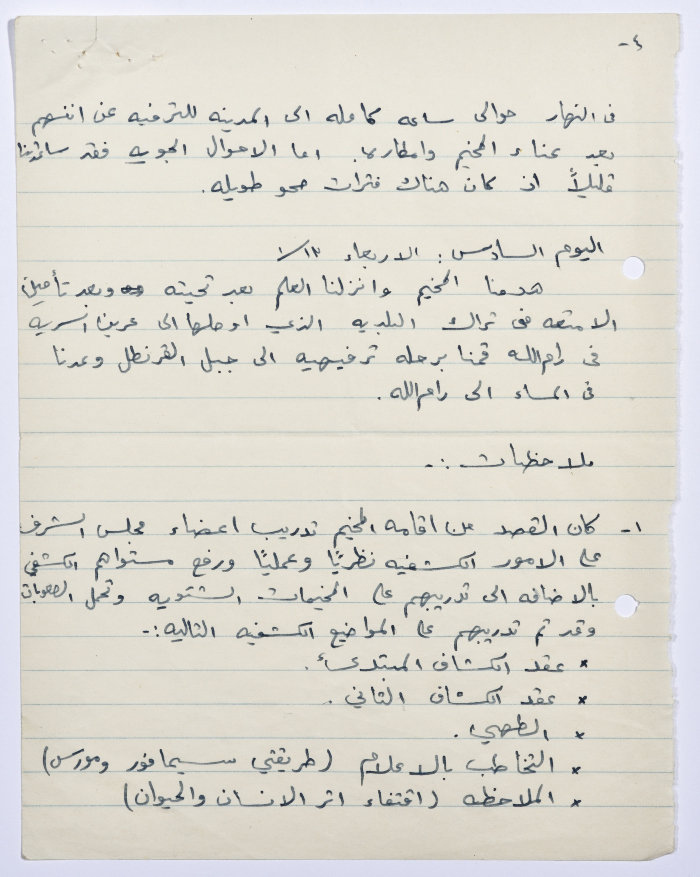 ٤-
في النهار حوالي ساعه كامله الى المدينه للترفيه عن انفسهم
بعد عناء المخيم وامطاره. اما الاحوال الجويه فقد ساعدتنا
قليلاً اذ كان هناك فترات صحو طويله.
اليوم السادس : الاربعاء ١/١٣
هدمنا المخيم وانزلنا العلم بعد تحيته وبعد تأمين
الامتعه في تراك البلديه الذي اوصلها الى عرين السريه
في رام الله قمنا برحله ترفيهيه الى جبل القرنطل وعدنا
في المساء الى رام الله .
ملاحظات :-
١- كان القصد من اقامه المخيم تدريب اعضاء مجلس الشرف
على الامور الكشفيه نظريًا وعمليًا ورفع مستواهم الكشفي
بالاضافه الى تدريبهم على المخيمات الشتويه وتحمل الصعوبات
وقد تم تدريبهم على المواضيع الكشفيه التاليه :-
* عقد الكشاف المبتدىء .
* عقد الكشاف الثاني .
* الطهي .
* التخاطب بالاعلام (طريقتي سيمافور ومورس)
* الملاحظه (اقتفاء اثر الانسان والحيوان)